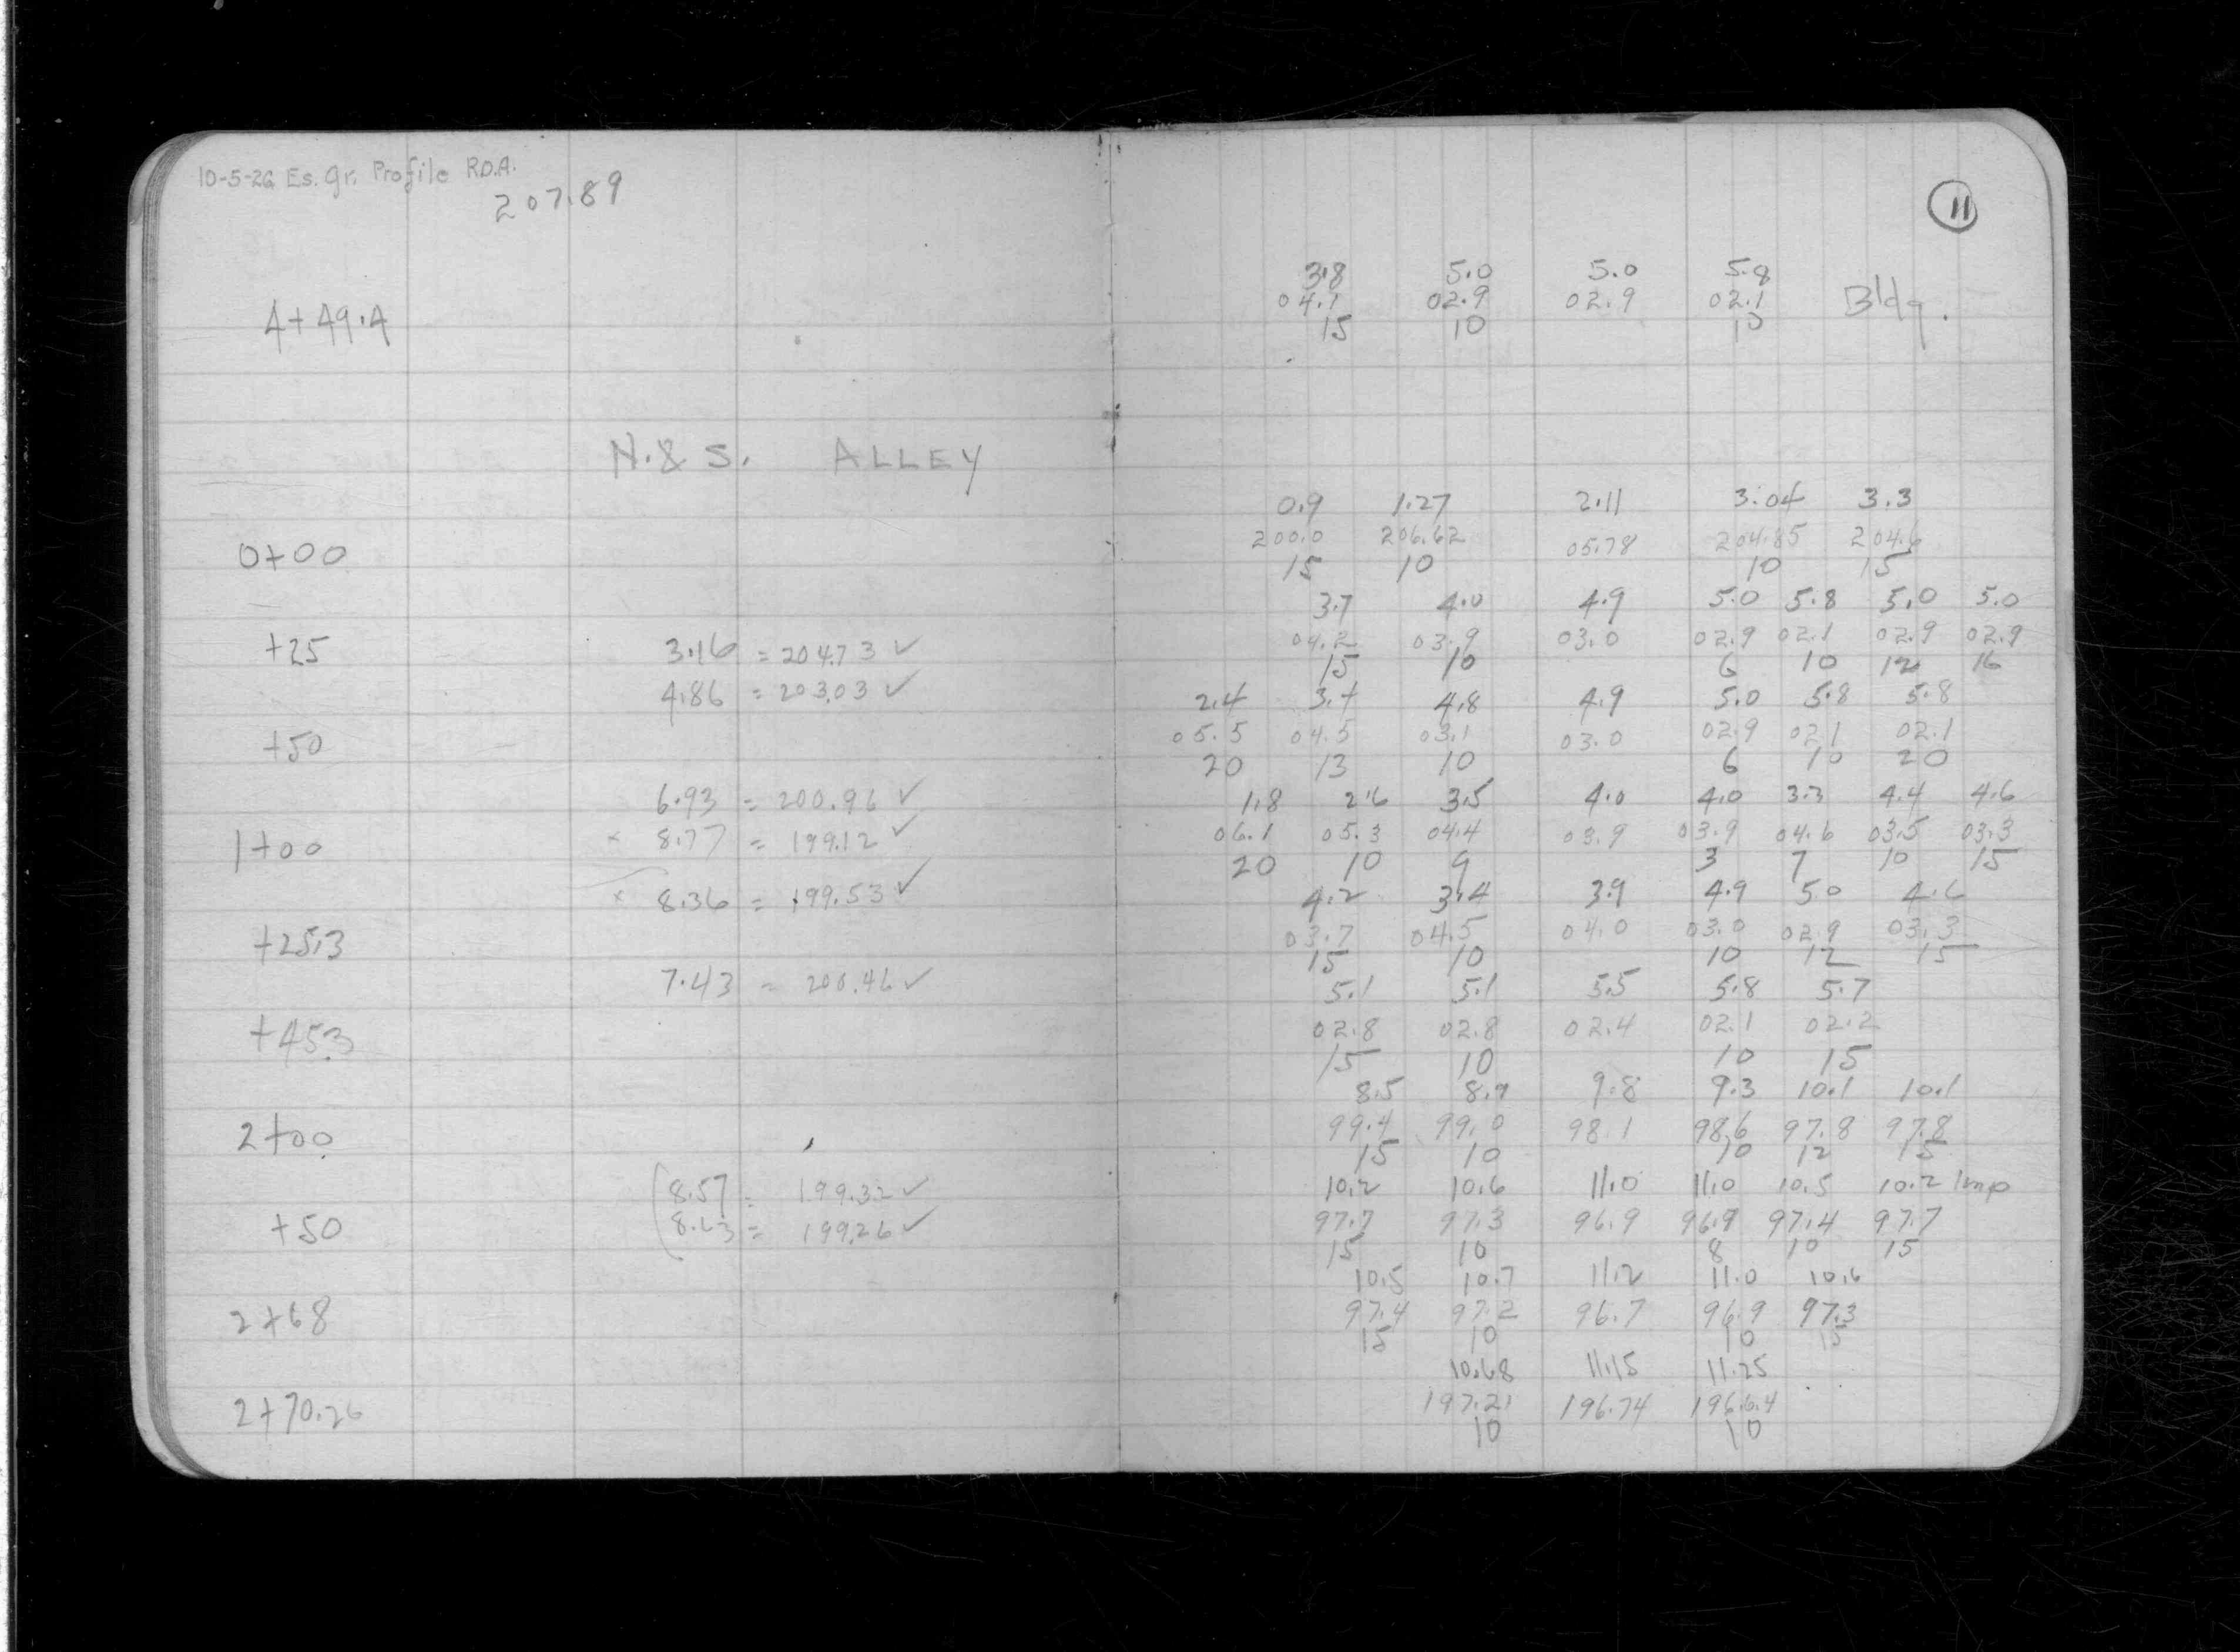 10-5-26 Es. gr. Profile R.D.A.
207.89
4+49.4
N. & S. ALLEY
0+00
+25 3.16 = 204.73 ✓
4.86 = 203.03 ✓
+50
6.93 = 200.96 ✓
1+00 × 8.77 = 199.12 ✓
× 8.36 = 199.53 ✓
+25.3
7.43 = 200.46 ✓
+45.3
2+00
8.57 = 199.32 ✓
+50 8.63 = 199.26 ✓
2+68
2+70.26
11
3.8 5.0 5.0 5.8
04.1 02.9 02.9 02.1 Bldg.
15 10 10
0.9 1.27 2.11 3.04 3.3
200.0 206.62 05.78 204.85 204.6
15 10 10 15
3.7 4.0 4.9 5.0 5.8 5.0 5.0
04.2 03.9 03.0 02.9 02.1 02.9 02.9
15 10 6 10 12 16
2.4 3.4 4.8 4.9 5.0 5.8 5.8
05.5 04.5 03.1 03.0 02.9 02.1 02.1
20 13 10 6 10 20
1.8 2.6 3.5 4.0 4.0 3.3 4.4 4.6
06.1 05.3 04.4 03.9 03.9 04.6 03.5 03.3
20 10 9 3 7 10 15
4.2 3.4 3.9 4.9 5.0 4.6
03.7 04.5 04.0 03.0 02.9 03.3
15 10 10 12 15
5.1 5.1 5.5 5.8 5.7
02.8 02.8 02.4 02.1 02.2
15 10 10 15
8.5 8.9 9.8 9.3 10.1 10.1
99.4 99.0 98.1 98.6 97.8 97.8
15 10 10 12 15
10.2 10.6 11.0 11.0 10.5 10.2 Imp
97.7 97.3 96.9 96.9 97.4 97.7
15 10 8 10 15
10.5 10.7 11.2 11.0 10.6
97.4 97.2 96.7 96.9 97.3
15 10 10 15
10.68 11.15 11.25
197.21 196.74 196.64
10 10